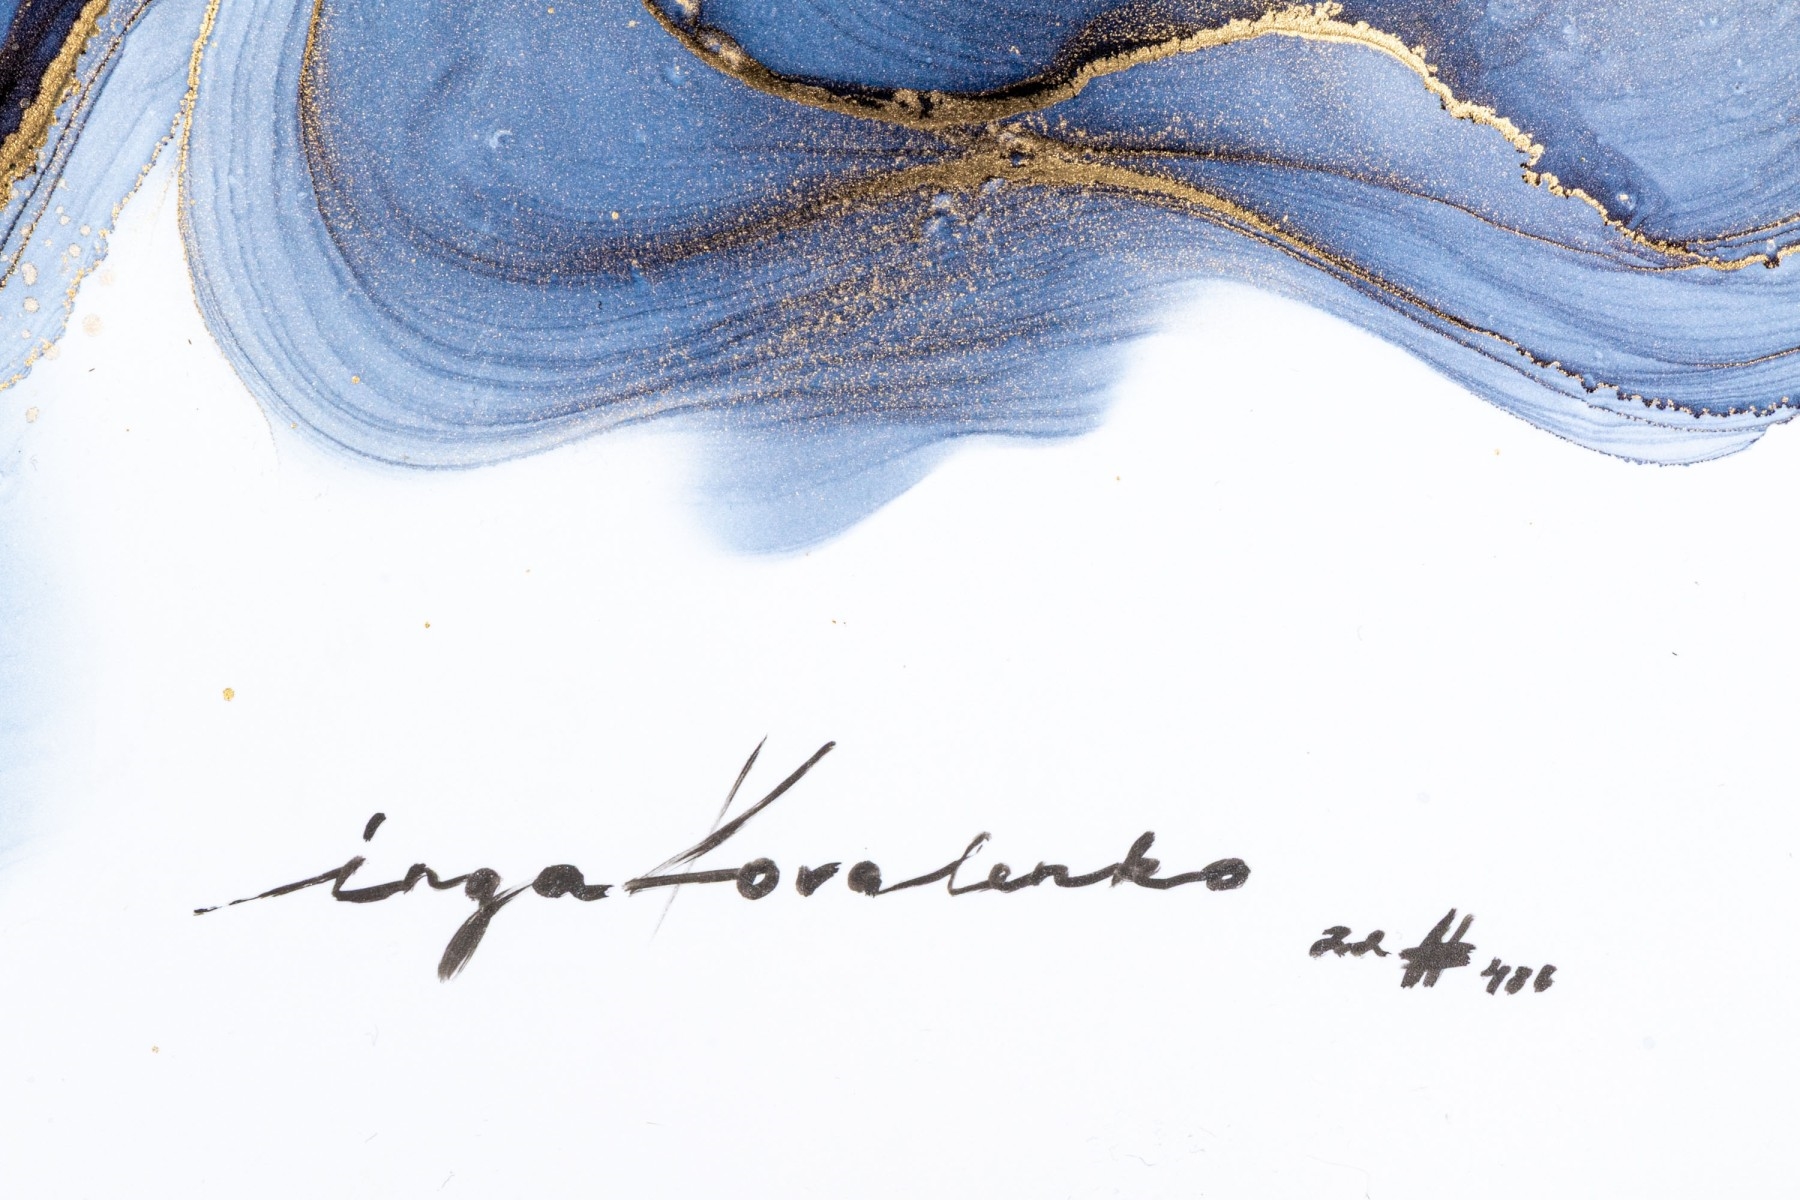 inga Kovalenko
# 486